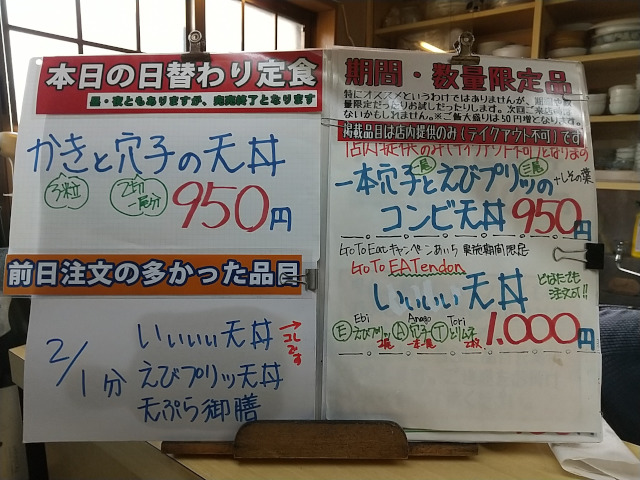 本日の日替わり定食
昼・夜ともありますが、完売終了となります
かきと穴子の天丼
3粒
一尾分
950円
前日注文の多かった品目
2/1分
いいいい天丼
→コレです
えびプリッ天丼
天ぷら御膳
期間・数量限定品
特にオススメというわけではありませんが、期間
量限定だったりお試しだったりします。次回ご来店
ないかもしれません。※ご飯大盛りは50円増となります。
掲載品目は店内提供のみ(テイクアウト不可)です
一尾
三尾
一本穴子とえびプリッの
+しその葉
コンビ天丼 950円
Go To Eatキャンペーンあいち 実施期間限定
Go To EATendon
いいいい天丼
どなたでも
注文可!!
Ebi Anago Tori
Eえびプリッ A穴子 Tとりムネ
2尾 一本一尾 2枚
1.000円